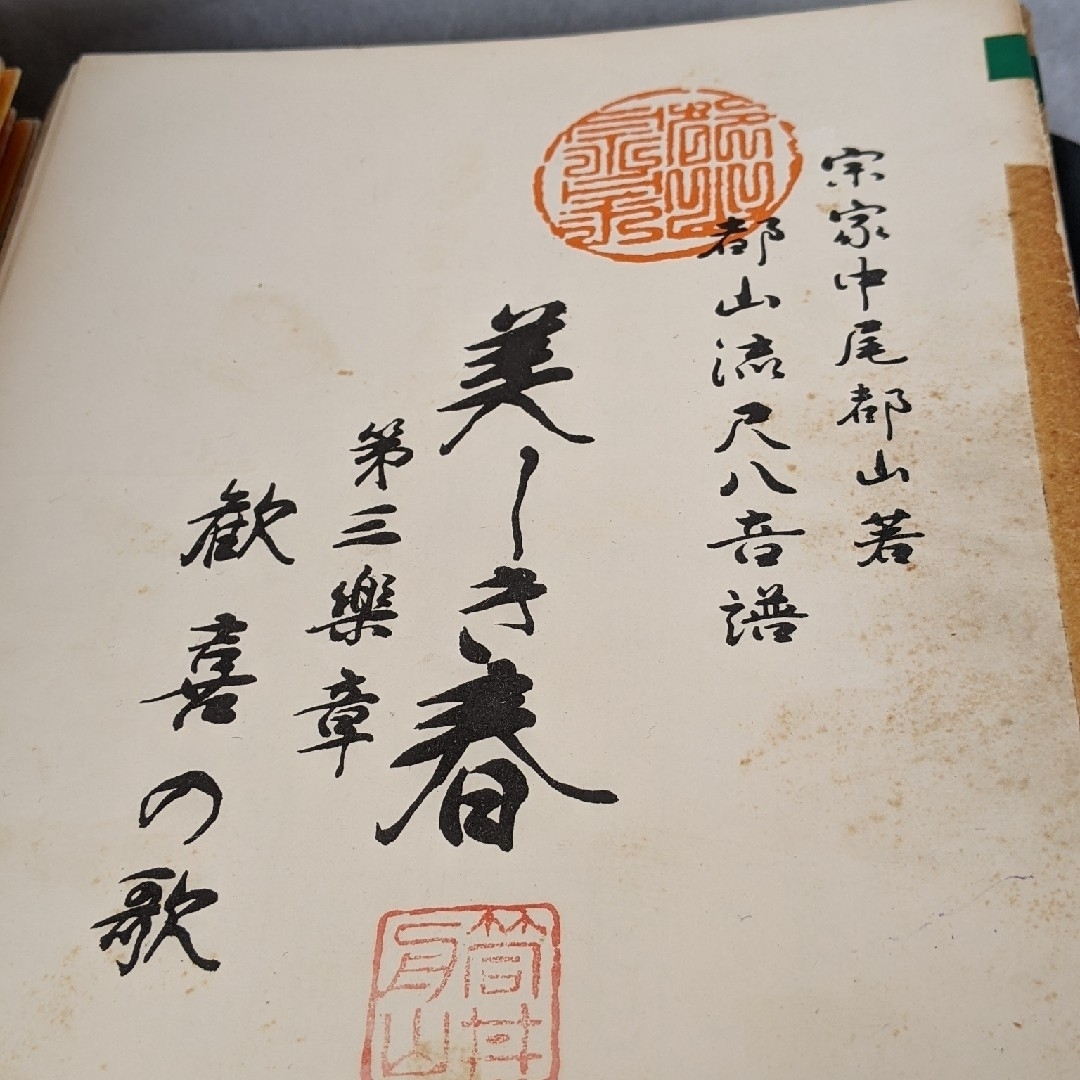 宗家中尾都山著
都山流尺八音譜
美しき春
第三樂章
歓喜の歌